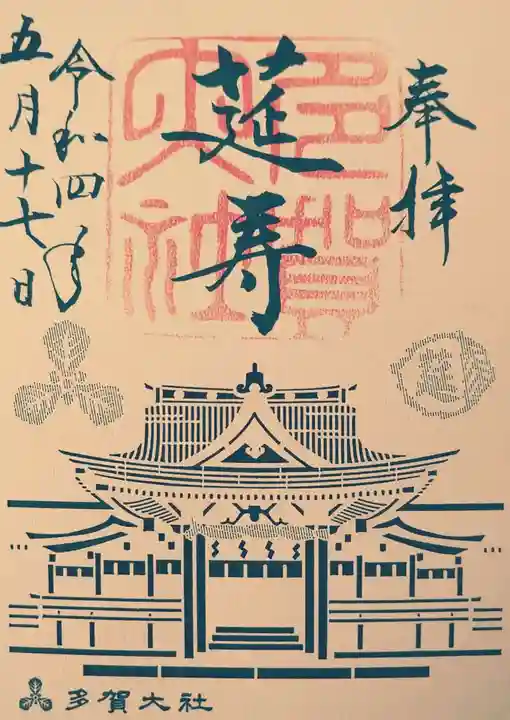 奉拝
莚寿
令和四年
五月十七日
多賀大社
多賀大社